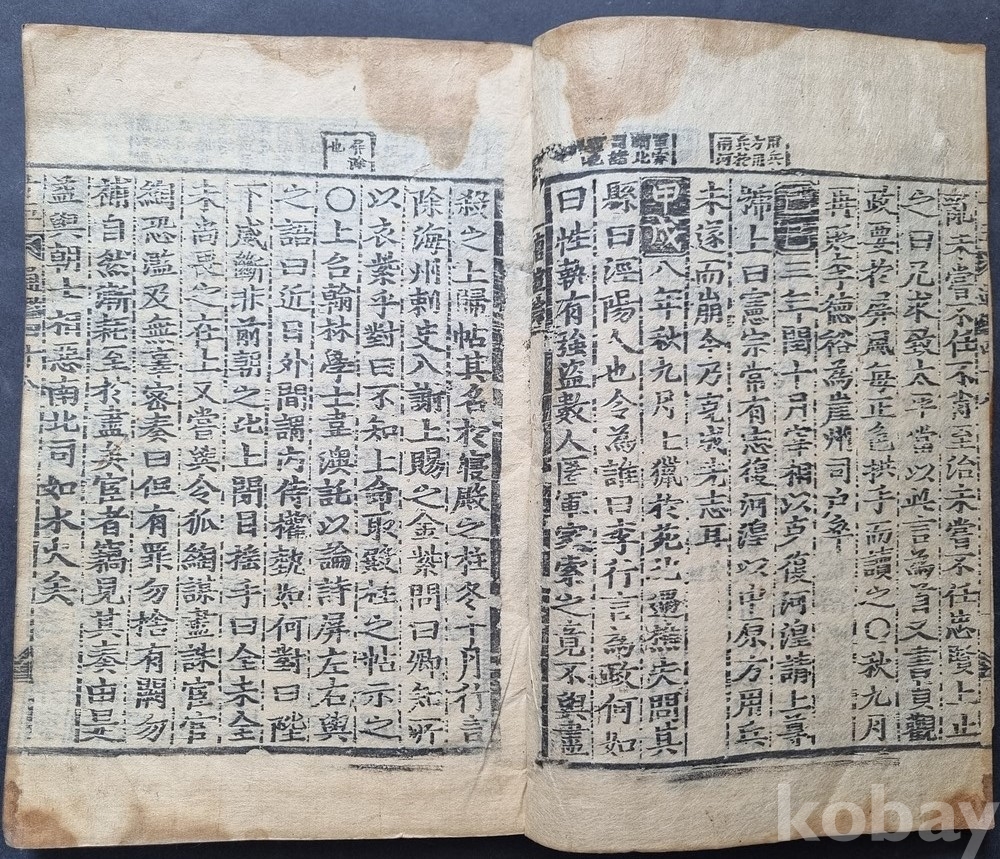 用兵
方用
兵於
兩河
亂未嘗不任不肖至治未嘗不任忠賢上止
之曰凡求致太平當以此言爲首又書貞觀
政要於屏風每正色拱手而讀之〇秋九月
再貶李德裕爲崖州司戶卒
己巳三年閏十月宰相以克復河湟請上尊
號上曰憲宗常有志復河湟以中原方用兵
未遂而崩今乃克成先志耳
甲戌八年秋九月上獵於苑北遇樵夫問其
縣曰涇陽人也令爲誰曰李行言爲政何如
曰性執有強盜數人匿軍家索之竟不與盡
屏除
也
殺之上歸帖其名於寢殿之柱冬十月行言
除海州刺史入謝上賜之金紫問曰卿知所
以衣紫乎對曰不知上命取殿柱之帖示之
〇上召翰林學士韋澳託以論詩屏左右與
之語曰近日外間謂內侍權勢如何對曰陛
下威斷非前朝之比上閉目搖手曰全未全
未尚畏之在上又嘗與令狐綯謀盡誅宦官
綯恐濫及無辜密奏曰但有罪勿捨有闕勿
補自然漸耗至於盡矣宦者竊見其奏由是
益與朝士相惡南北司如水火矣
kobay